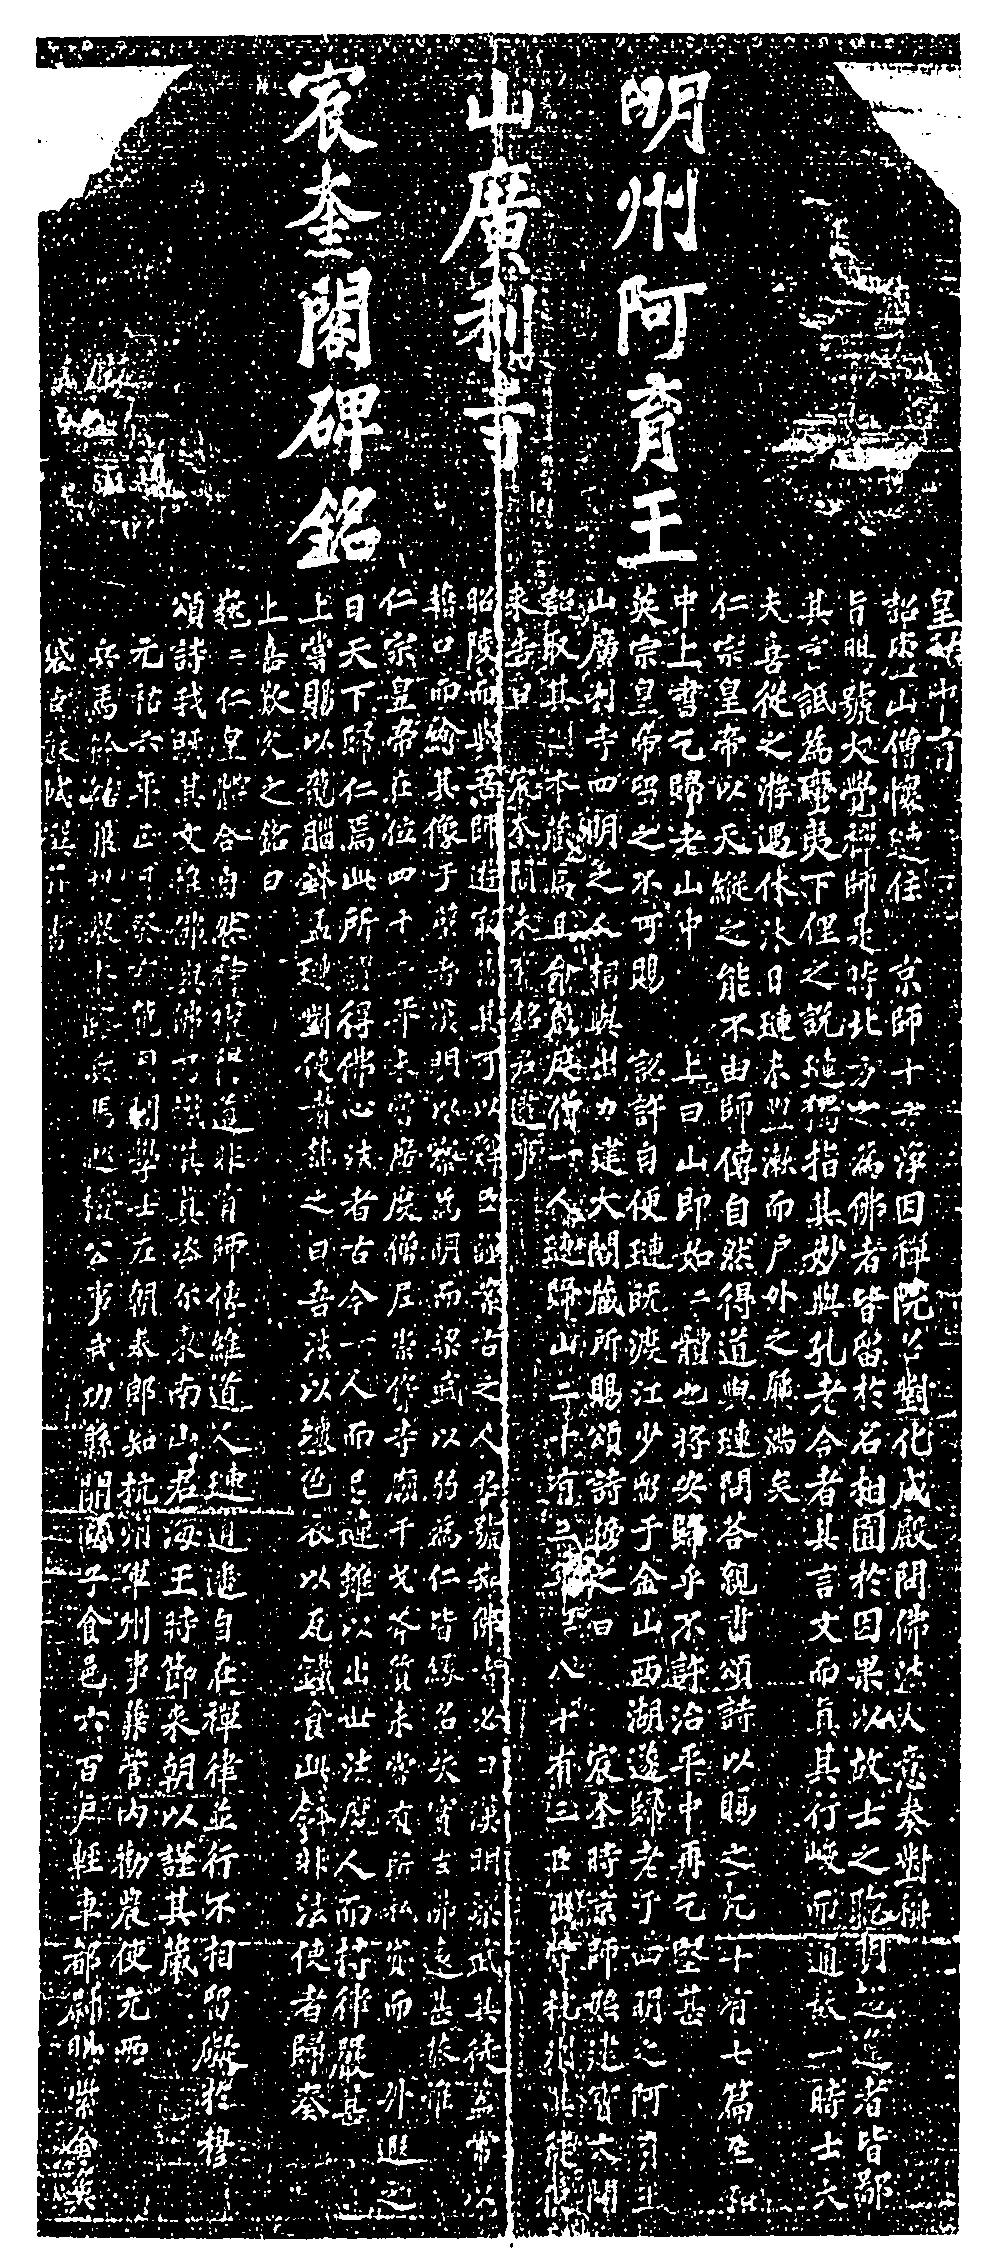 明州阿育王
山廣利寺
宸奎閣碑銘
皇祐中有
詔廬山僧懷璉住 京師十方淨因禪院召對化成殿問佛法大意奏對稱
旨賜號大覺禪師是時北方之為佛者皆留於名相囿於因果以故士之聰明超軼者皆鄙
其言詆為蠻夷下俚之說璉獨指其妙與孔老合者其言文而真其行峻而通故一時士大
夫喜從之游遇休沐日璉未盥漱而戶外之屨滿矣
仁宗皇帝以天縱之能不由師傅自然得道與璉問荅親書頌詩以賜之凡十有七篇至和
中上書乞歸老山中 上曰山即如〻體也將安歸乎不許治平中再乞堅甚
英宗皇帝留之不可賜 詔許自便璉既渡江少留于金山西湖遂歸老于四明之阿育王
山廣利寺四明之人相與出力建大閣藏所賜頌詩榜之曰 宸奎時京師始建寶文閣
詔取其副本藏焉且命歲度僧一人璉歸山二十有三年 八十有三臣出守杭州其徒使
來告曰 宸奎閣未有銘君逮事
昭陵而與吾師遊最舊其可以辭臣謹案古之人君號知佛者必曰漢明梁武其徒蓋常以
藉口而繪其像于壁者漢明以察為明而梁武以弱為仁皆緣名失實去佛遠甚恭惟
仁宗皇帝在位四十二年未嘗廣度僧尼崇侈寺廟干戈斧質未嘗有所私貸而 升遐之
日天下歸仁焉此所謂得佛心法者古今一人而已璉雖以出世法度人而持律嚴甚
上嘗賜以龍腦鉢盂璉對使者焚之曰吾法以壞色衣以瓦鐵食此鉢非法使者歸奏
上嘉歎久之銘曰
巍〻仁皇體合自然神曜得道非有師傳維道人璉逍遙自在禪律並行不相留礙於穆
頌詩我既其文惟佛與佛乃識其真咨爾東南山君海王時節來朝以謹其藏
元祐六年正月癸亥龍圖閣學士左朝奉郎知杭州軍州事兼管內勸農使充兩
兵馬鈐轄兼 兵馬巡檢公事武功縣開國子食邑六百戶輕車都尉賜紫金魚
袋臣蘇軾撰并書